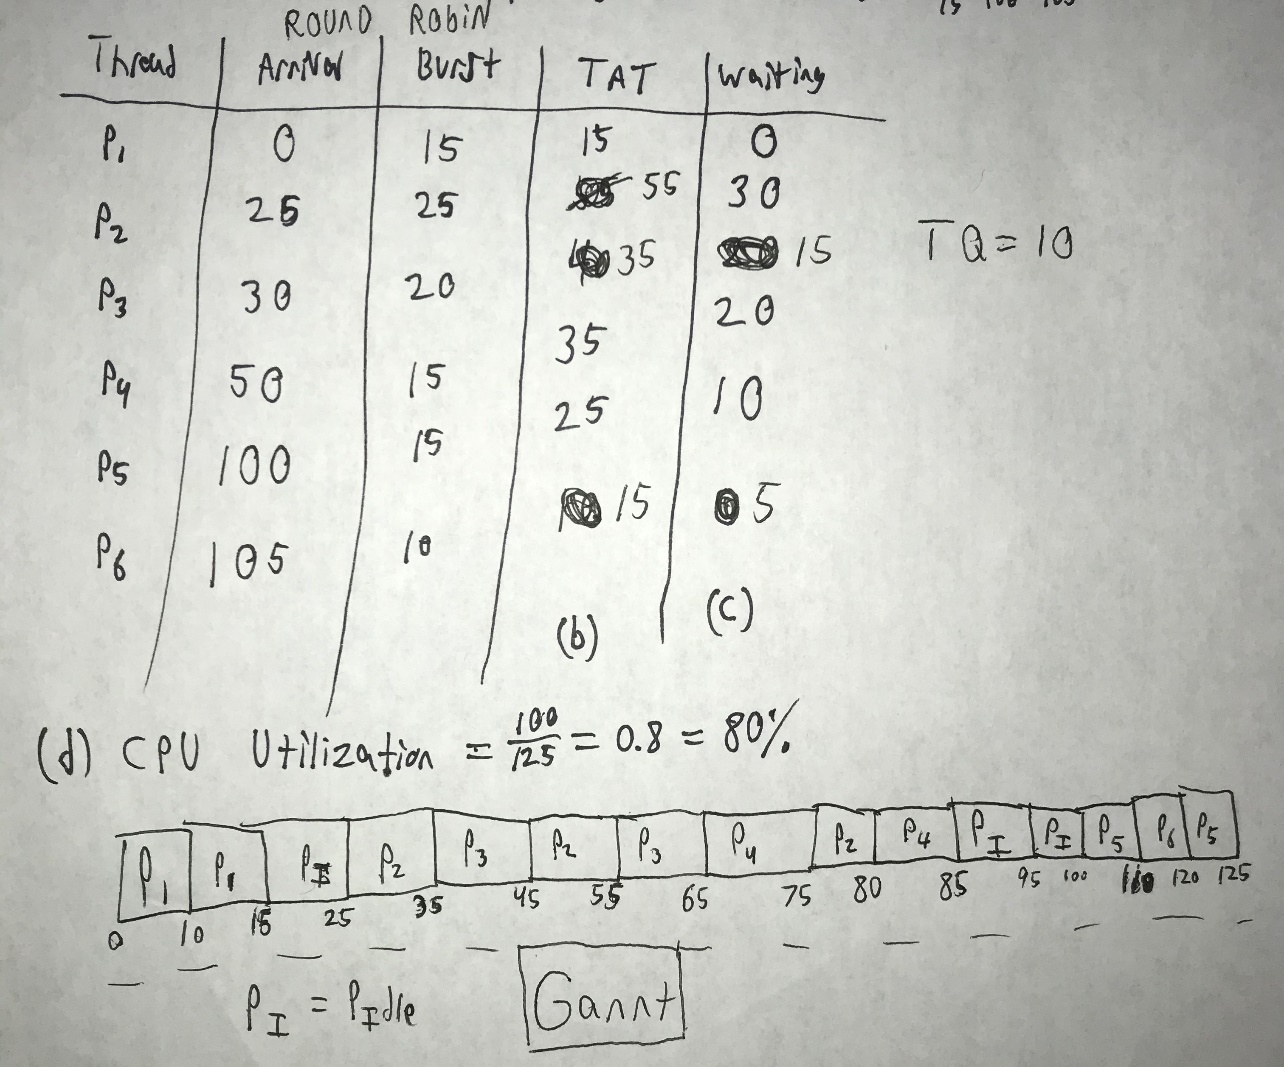 ROUND RobiN
Thread Arrival Burst TAT waiting
P1 0 15 15 0
P2 25 25 55 30
P3 30 20 35 15
P4 50 15 35 20
P5 100 15 25 10
P6 105 10 15 5
TQ = 10
(b) (c)
(d) CPU Utilization = 100/125 = 0.8 = 80%
P1 P1 PI P2 P3 P2 P3 P4 P2 P4 PI PI P5 P6 P5
0 10 15 25 35 45 55 65 75 80 85 95 100 110 120 125
PI = PIdle
Gannt